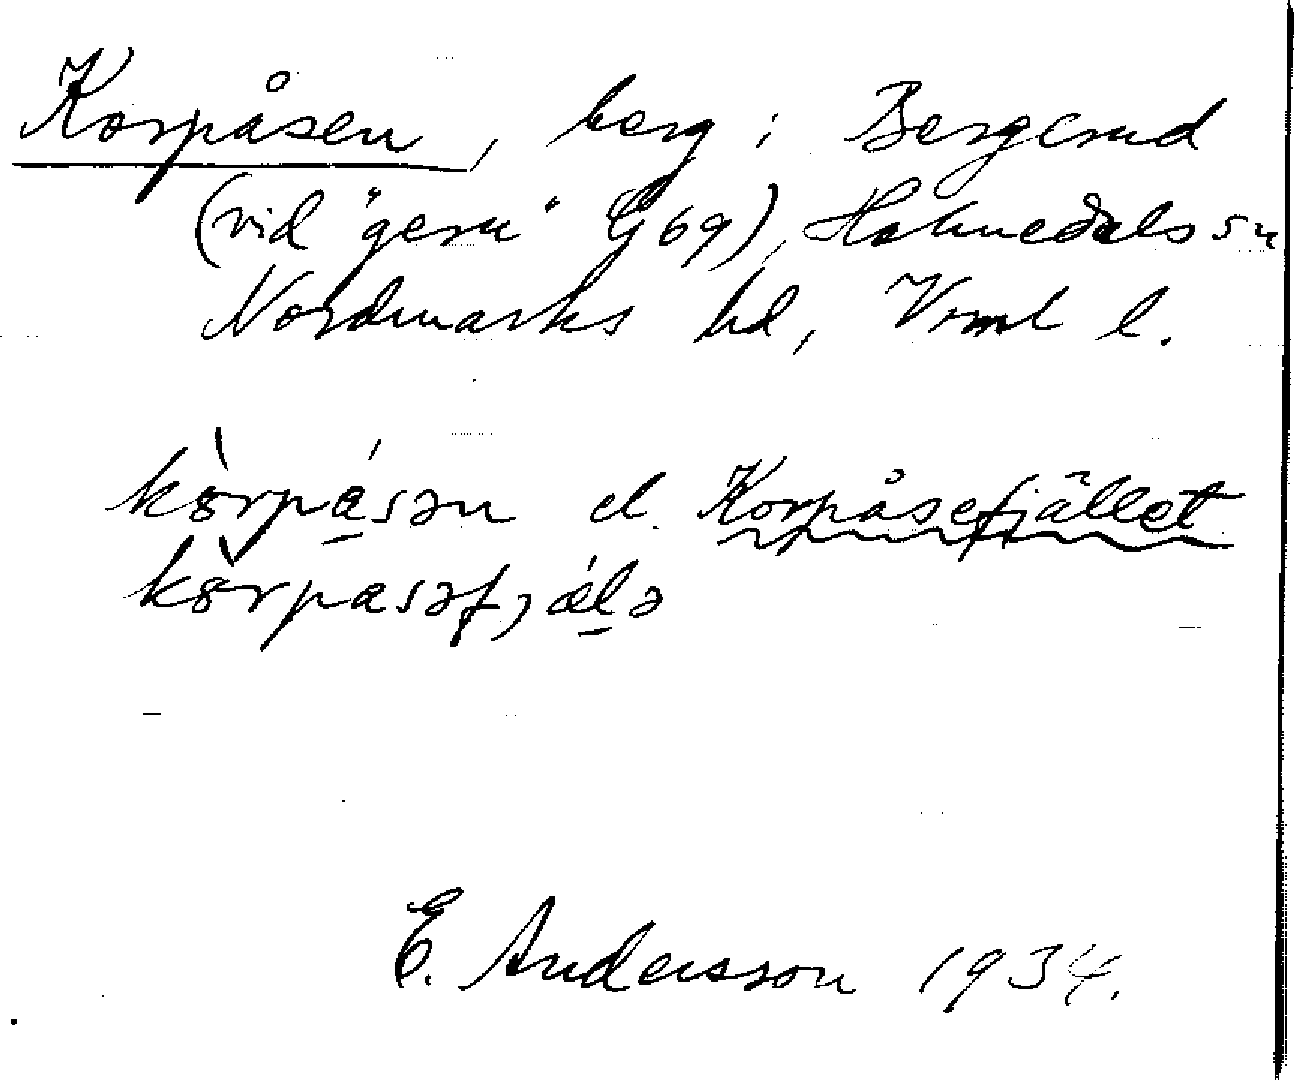 Korpåsen, berg i Bergerud
(vid "geru" G 69), Holmedals sn
Nordmarks hd, Vrml l.
kòrpásən el. Korpåsefjället
kòrpasəfjælə
E. Andersson 1934.